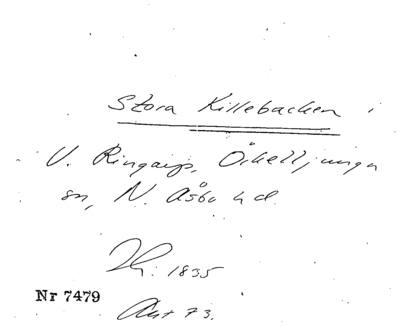 Stora Killebacken i
V. Ringarp, Örkelljunga
sn, N. Åsbo hd.
1835
Nr 7479
Ant 73.